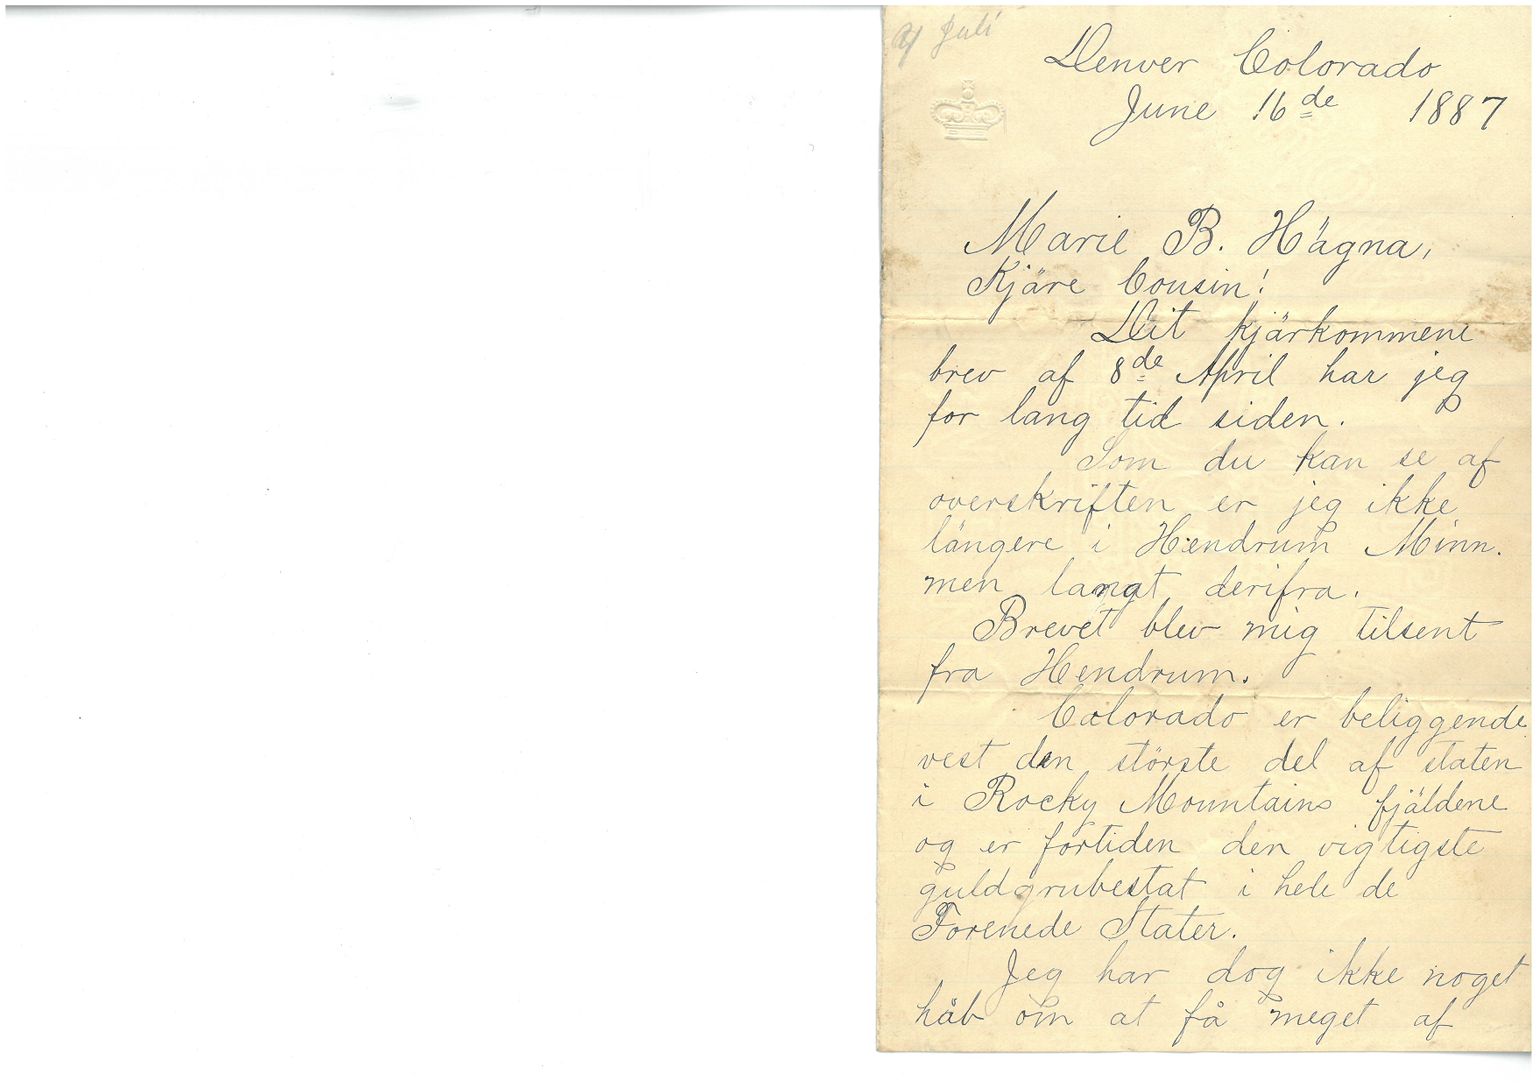 Juli
Denver Colorado
June 16de 1887
Marie B. Hägna,
Kjäre Cousin!
Dit kjärkommene
brev af 8de April har jeg
for lang tid siden.
Som du kan se af
overskriften er jeg ikke
längere i Hendrum Minn.
men langt derifra.
Brevet blev mig tilsent
fra Hendrum.
Colorado er beliggende
vest den störste del af staten
i Rocky Mountains fjäldene
og er fortiden den vigtigste
guldgrubestat i hele de
Forenede Stater.
Jeg har dog ikke noget
håb om at få meget af